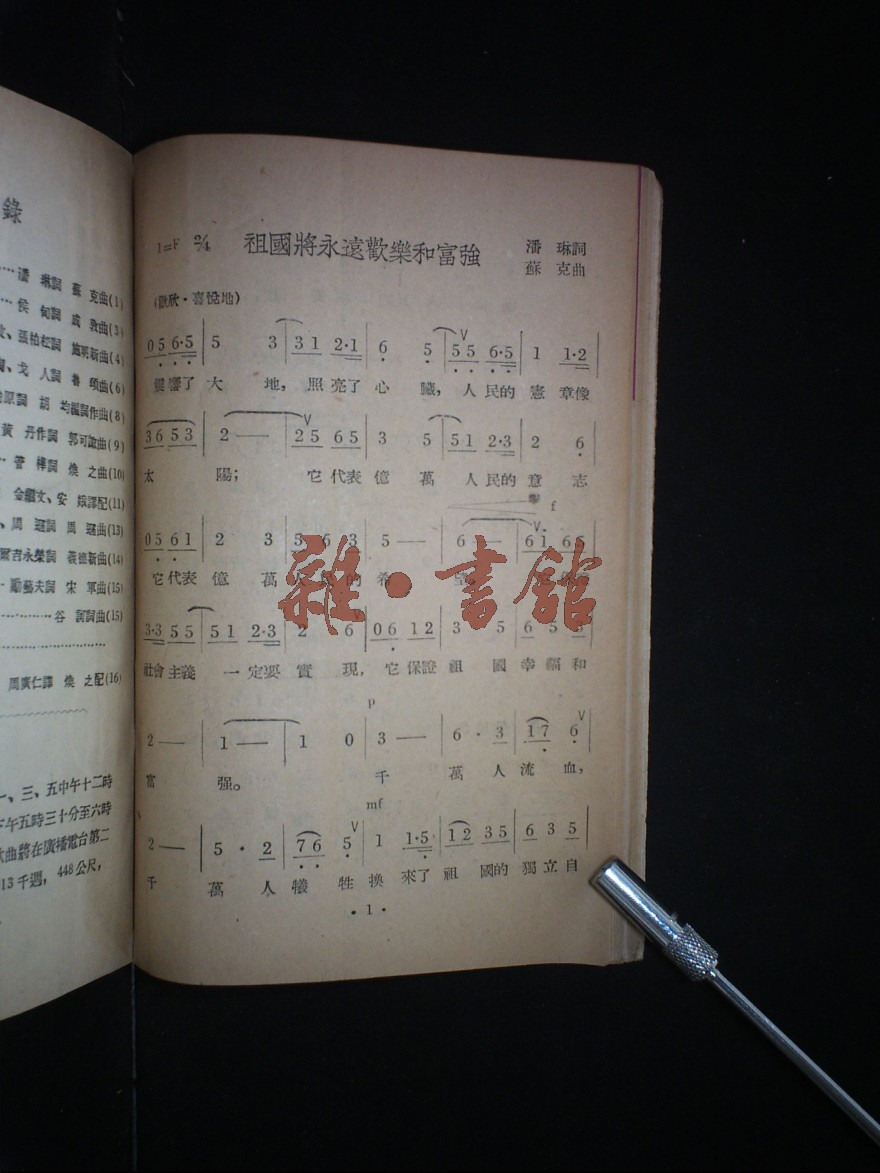 錄
潘 琳詞 蘇 克曲(1)
侯 甸詞 成 敎曲(3)
張柏松詞 施明新曲(4)
戈 人詞 魯 頌曲(6)
原詞 胡 均編詞作曲(8)
黃 丹作詞 郭可諏曲(9)
管 樺詞 煥 之曲(10)
金繼文、安 娥譯配(11)
周 𤨏詞 周 𤨏曲(13)
爾吉永榮詞 義德新曲(14)
勵藝夫詞 宋 軍曲(15)
谷 詞詞曲(15)
周廣仁譯 煥 之配(16)
一、三、五中午十二時
下午五時三十分至六時
歌曲將在廣播電台第二
13千週，448公尺，
1=F 2/4 祖國將永遠歡樂和富強
潘 琳詞
蘇 克曲
(歡欣·喜悅地)
0 5 6·5 | 5 3 | 3 1 2·1 | 6 5 | 5 5 6·5 | 1 1·2
響了大地，照亮了心臟，人民的憲章像
3 6 5 3 | 2 — | 2 5 6 5 | 3 5 | 5 1 2·3 | 2 6
太陽；它代表億萬人民的意志
f
0 5 6 1 | 2 3 | 3 6 3 | 5 — | 6 — | 6 1 6 5
它代表億萬人民的希望。
雜·書館
3·3 5 5 | 5 1 2·3 | 2 6 | 0 6 1 2 | 3 5 | 6 5 3
社會主義一定要實現，它保證祖國幸福和
p
2 — | 1 — | 1 0 | 3 — | 6·3 | 1 7 6
富強。千萬人流血，
mf
2 — | 5·2 | 7 6 5 | 1 1·5 | 1 2 3 5 | 6 3 5
千萬人犧牲換來了祖國的獨立自
·1·